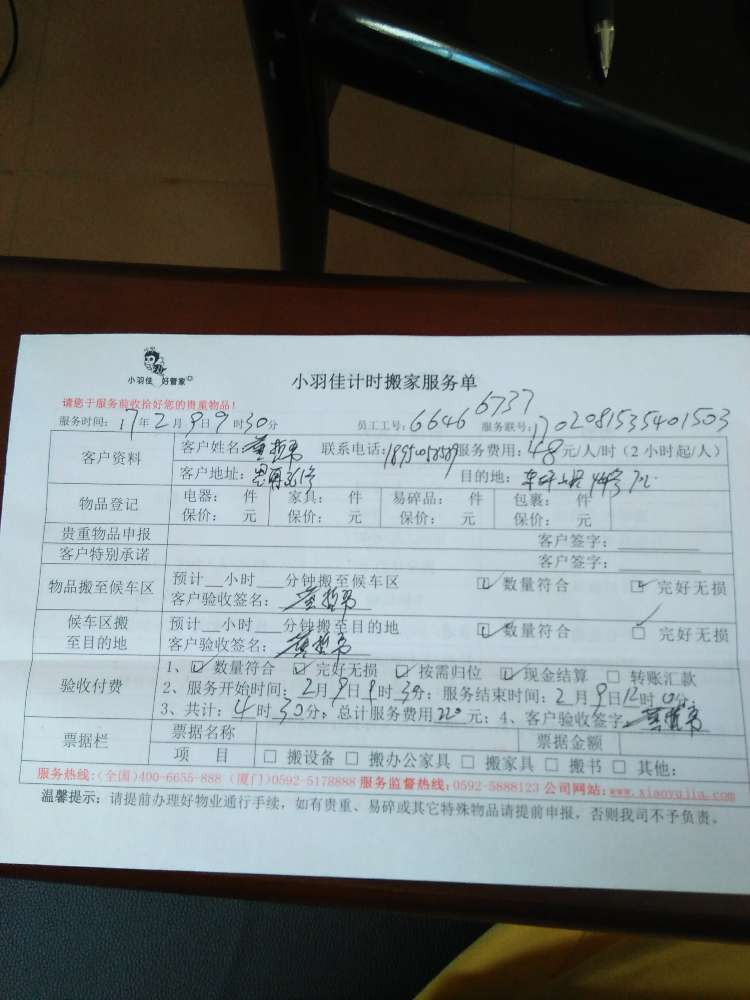 小羽佳 好管家
小羽佳计时搬家服务单
请您于服务前收拾好您的贵重物品!
服务时间:17年2月9日9时30分 员工工号:6646 6737 服务联号:1702081535401503
客户资料 客户姓名: 联系电话: 服务费用:48元/人/时(2小时起/人)
客户地址: 目的地:
物品登记 电器: 件 家具: 件 易碎品: 件 包裹: 件
保价: 元 保价: 元 保价: 元 保价: 元
贵重物品申报 客户签字:
客户特别承诺 客户签字:
物品搬至候车区 预计__小时___分钟搬至候车区 ☑ 数量符合 ☑ 完好无损
客户验收签名:
候车区搬至目的地 预计__小时___分钟搬至目的地 ☑ 数量符合 ☐ 完好无损
客户验收签名:
验收付费 1、☑ 数量符合 ☑ 完好无损 ☑ 按需归位 ☑ 现金结算 ☐ 转账汇款
2、服务开始时间:2月9日 时 分;服务结束时间:2月9日12时 分;
3、共计:4时30分;总计服务费用220元;4、客户验收签字
票据栏 票据名称 票据金额
项 目 ☐ 搬设备 ☐ 搬办公家具 ☐ 搬家具 ☐ 搬书 ☐ 其他:
服务热线:(全国)400-6655-888 (厦门)0592-5178888 服务监督热线:0592-5888123 公司网站:www.xiaoyujia.com
温馨提示:请提前办理好物业通行手续,如有贵重、易碎或其它特殊物品请提前申报,否则我司不予负责。